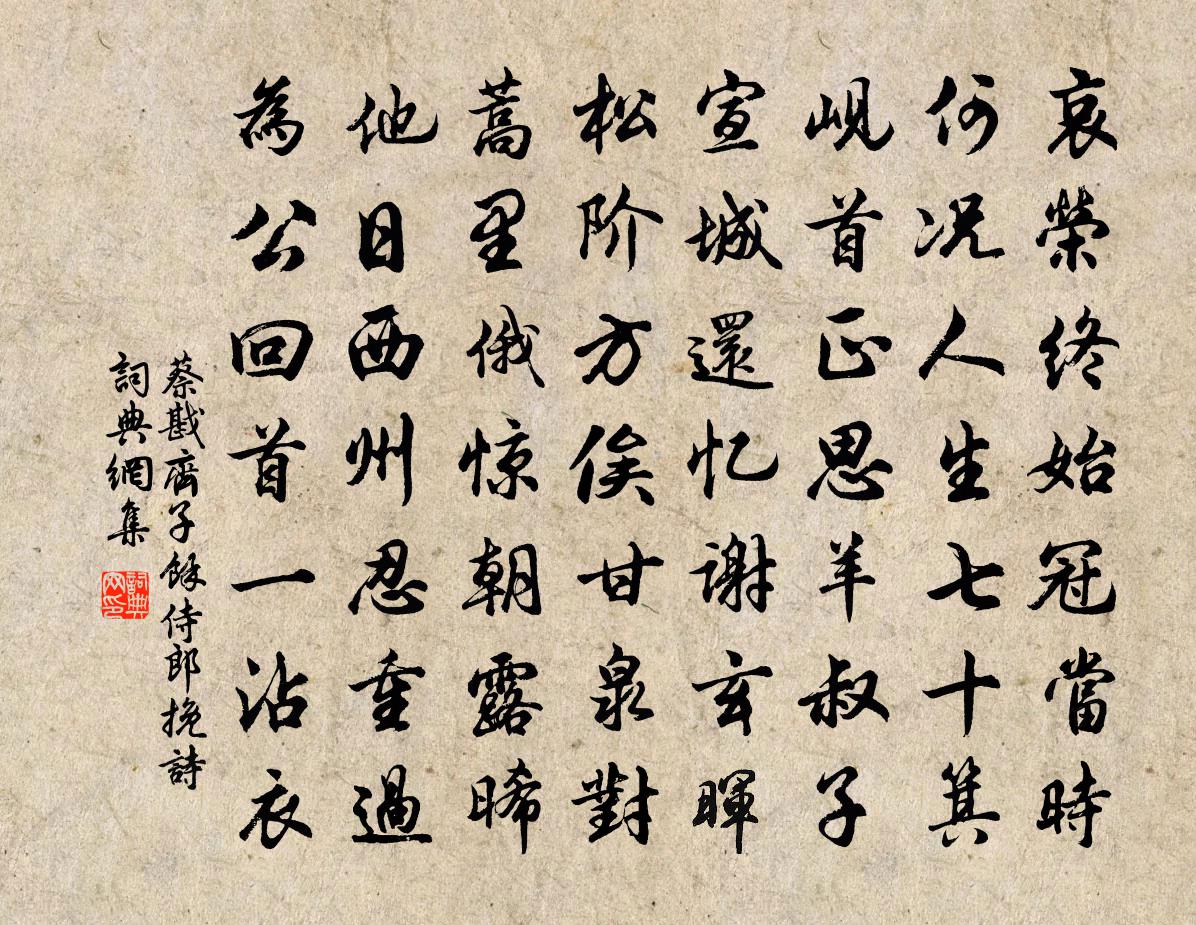 哀榮終始冠當時
何况人生七十箕
峴首正思羊叔子
宣城還忆謝玄暉
松阶方俟甘泉對
蒿里俄惊朝露晞
他日西州忍重過
為公回首一沾衣
蔡戡齊子餘侍郎挽詩
詞典網集
詞典网印